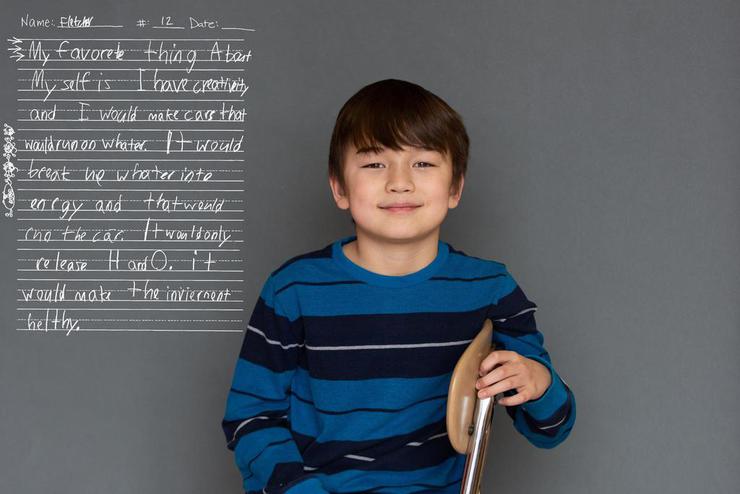 Name: Fletcher #: 12 Date:
My favorete thing About
My self is I have creativity
and I would make cars that
would run on whater. It would
break up whater into
energy and that would
run the car. It would only
release H and O. it
would make the inviernent
helthy.